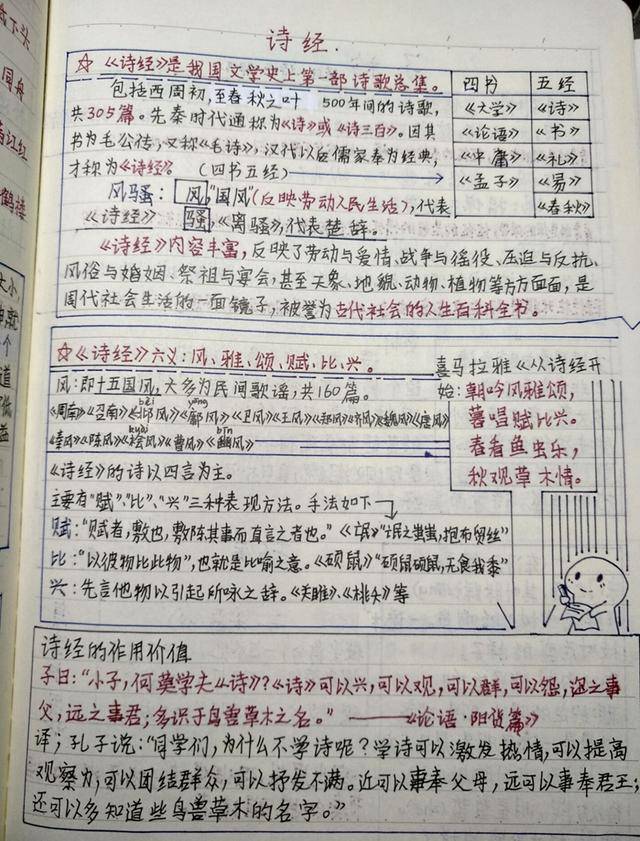 诗经.
☆《诗经》是我国文学史上第一部诗歌总集。
包括西周初,至春秋之叶 500年间的诗歌,
共305篇。先秦时代通称为《诗》或《诗三百》。因其
书为毛公传,又称《毛诗》,汉代以后儒家奉为经典,
才称为《诗经》。(四书五经)
四书 五经
《大学》 《诗》
《论语》 《书》
《中庸》 《礼》
《孟子》 《易》
《春秋》
风骚: 风,"国风"(反映劳动人民生活),代表
《诗经》 骚,《离骚》,代表楚辞。
《诗经》内容丰富,反映了劳动与爱情、战争与徭役、压迫与反抗、
风俗与婚姻、祭祖与宴会,甚至天象、地貌、动物、植物等方方面面,是
周代社会生活的一面镜子,被誉为古代社会的人生百科全书。
☆《诗经》六义:风、雅、颂、赋、比、兴。
风:即十五国风,大多为民间歌谣,共160篇。
《周南》《召南》《邶风》《鄘风》《卫风》《王风》《郑风》《齐风》《魏风》《唐风》
bèi yōng
《秦风》《陈风》《桧风》《曹风》《豳风》
kuài bīn
喜马拉雅《从诗经开
始:朝吟风雅颂,
暮唱赋比兴。
春看鱼虫乐,
秋观草木情。
《诗经》的诗以四言为主。
主要有"赋"、"比"、"兴"三种表现方法。手法如下
赋:"赋者,敷也,敷陈其事而直言之者也。"《氓》"氓之蚩蚩,抱布贸丝"
比:"以彼物比此物",也就是比喻之意。《硕鼠》"硕鼠硕鼠,无食我黍"
兴:先言他物以引起所咏之辞。《关雎》、《桃夭》等
诗经的作用价值
子曰:"小子,何莫学夫《诗》?《诗》可以兴,可以观,可以群,可以怨,迩之事
父,远之事君;多识于鸟兽草木之名。" ——《论语·阳货篇》
译;孔子说:"同学们,为什么不学诗呢?学诗可以激发热情,可以提高
观察力,可以团结群众,可以抒发不满。近可以事奉父母,远可以事奉君王;
还可以多知道些鸟兽草木的名字。"